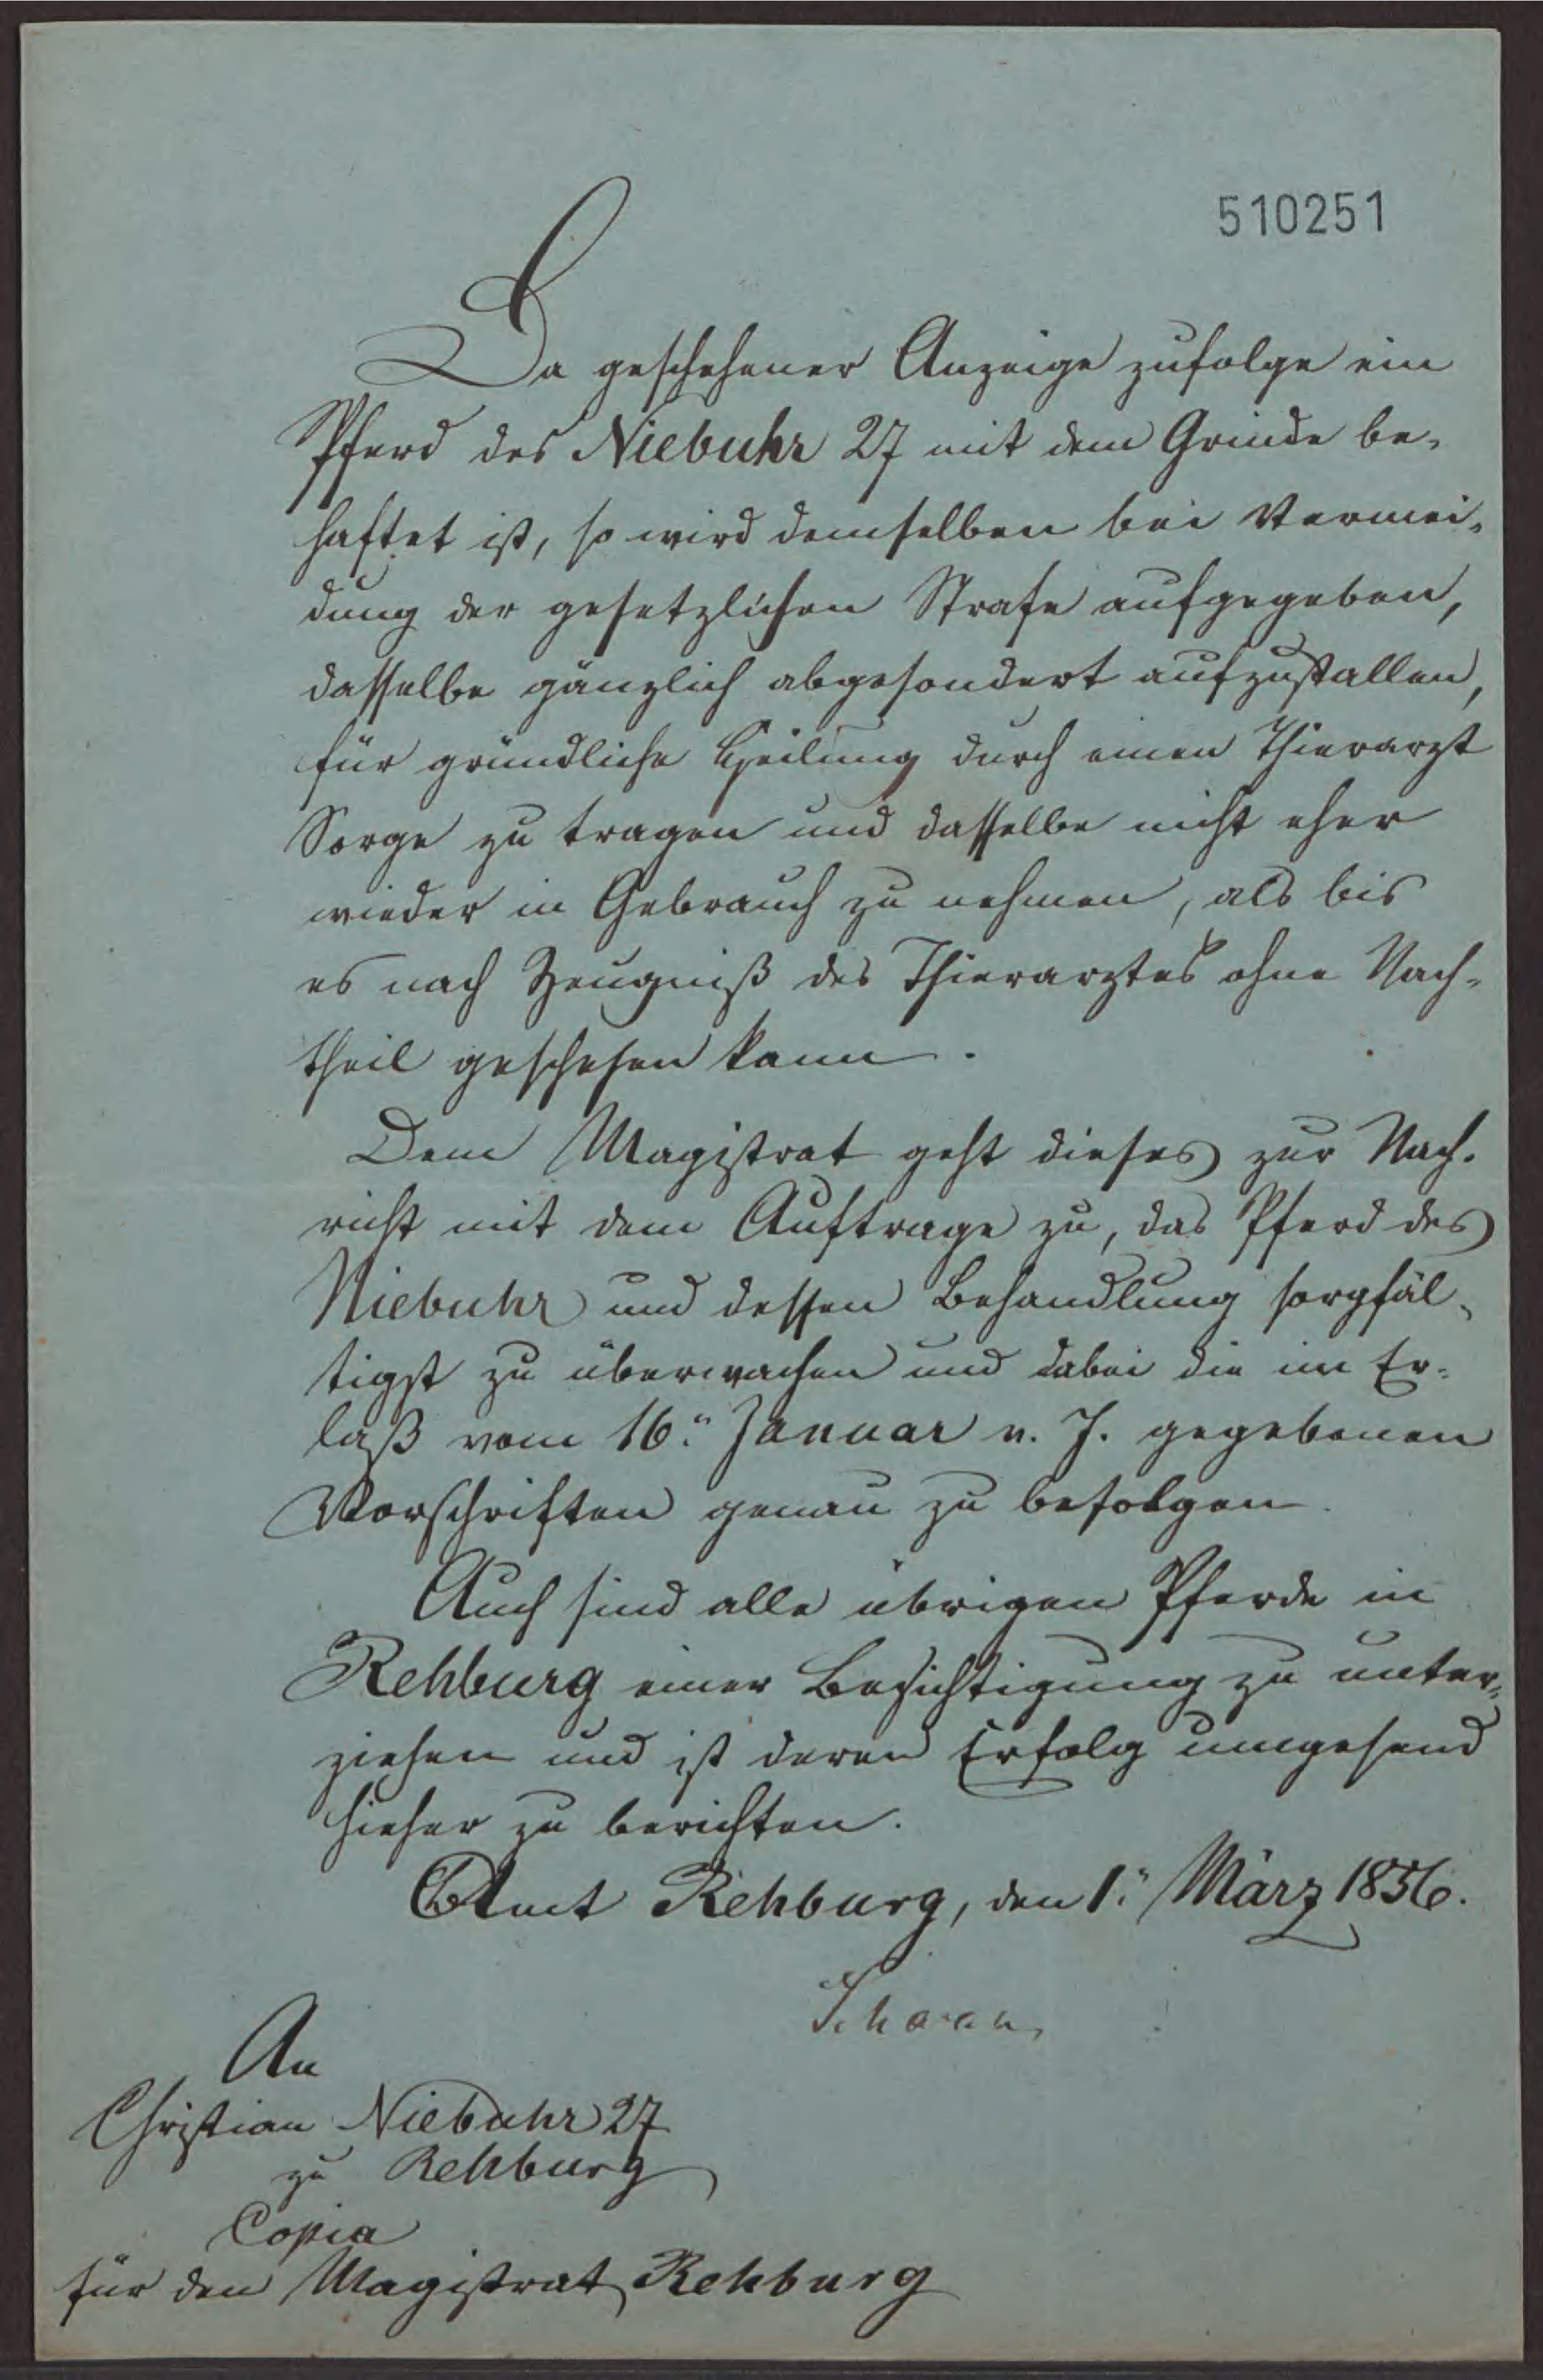 510251
Da geschehener Anzeige zufolge ein
Pferd des Niebuhr 27 mit dem Grinde be-
haftet ist, so wird demselben bei Vermei-
dung der gesetzlichen Strafe aufgegeben,
dasselbe gänzlich abgesondert aufzustallen,
für gründliche Heilung durch einen Thierarzt
Sorge zu tragen und dasselbe nicht eher
wieder in Gebrauch zu nehmen, als bis
es nach Zeugniß des Thierarztes ohne Nach-
theil geschehen kann.
Dem Magistrat geht dieses zur Nach-
richt mit dem Auftrage zu, das Pferd des
Niebuhr und dessen Behandlung sorgfäl-
tigst zu überwachen und dabei die im Er-
laß vom 16. Januar v. J. gegebenen
Vorschriften genau zu befolgen.
Auch sind alle übrigen Pferde in
Rehburg einer Besichtigung zu unter-
ziehen und ist deren Erfolg umgehend
hieher zu berichten.
Amt Rehburg, den 1. März 1856.
An
Christian Niebuhr 27
zu Rehburg
Copia
für den Magistrat Rehburg